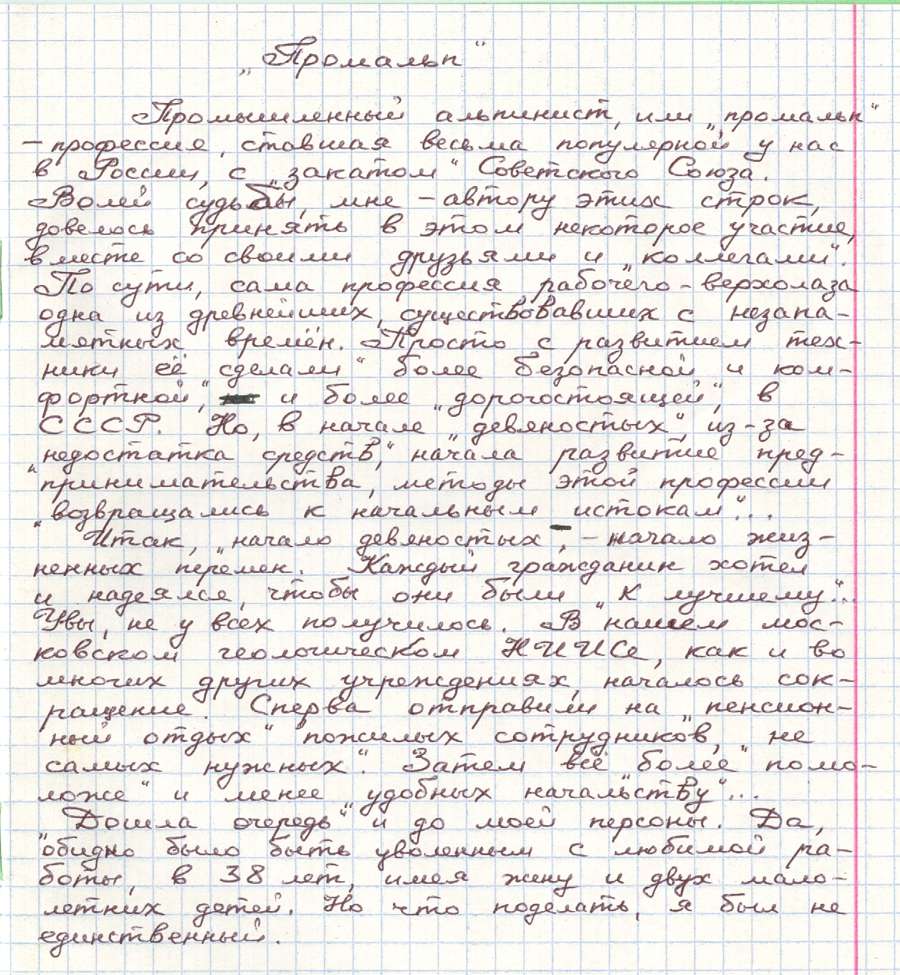 „Промальп“
Промышленный альпинист, или „промальп“
– профессия, ставшая весьма популярной у нас
в России, с „закатом“ Советского Союза.
Волей судьбы, мне – автору этих строк,
довелось принять в этом некоторое участие,
вместе со своими друзьями и „коллегами“.
По сути, сама профессия рабочего – верхолаза
одна из древнейших, существовавших с незапа-
мятных времён. Просто с развитием тех-
ники её „сделали“ более безопасной и ком-
фортной, и более „дорогостоящей“, в
СССР. Но, в начале „девяностых“, из-за
„недостатка средств“, начала развитие пред-
принимательства, методы этой профессии
„возвращались к начальным истокам“...
Итак, „начало девяностых“, – начало жиз-
ненных перемен. Каждый гражданин хотел
и надеялся, чтобы они были „к лучшему“...
Увы, не у всех получилось. В нашем мос-
ковском геологическом НИИСе, как и во
многих других учреждениях, началось сок-
ращение. Сперва отправили на „пенсион-
ный отдых“ пожилых сотрудников, „не
самых нужных“. Затем всё более „помо-
ложе“ и менее „удобных начальству“...
„Дошла очередь“ и до моей персоны. Да,
обидно было быть уволенным с любимой ра-
боты, в 38 лет, имея жену и двух мало-
летних детей. Но что поделать, я был не
единственный.